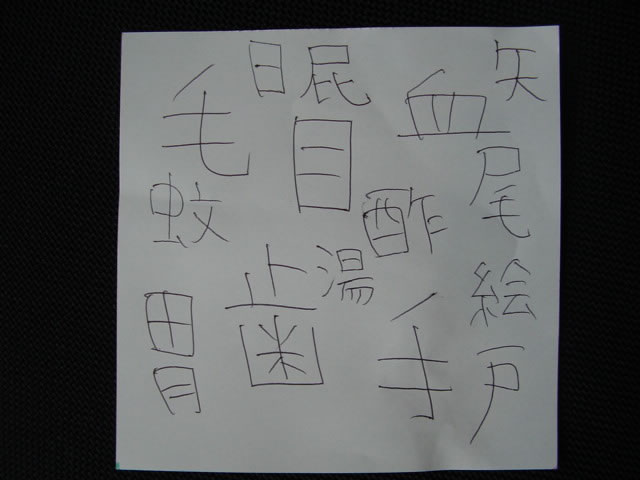 日 屁 血 矢
毛 目 尾
蚊 酢
歯 湯 絵
胃 手 戸